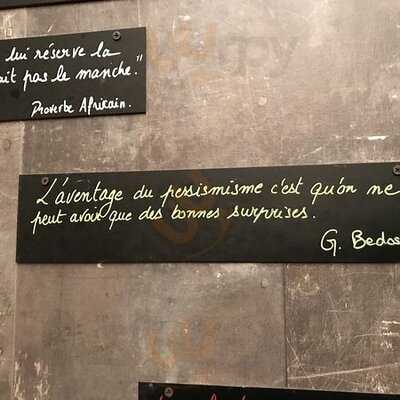 lui réserve la
ait pas le manche."
Proverbe Africain.
L'aventage du pessismisme c'est qu'on ne
peut avoir que des bonnes surprises.
G. Bedos